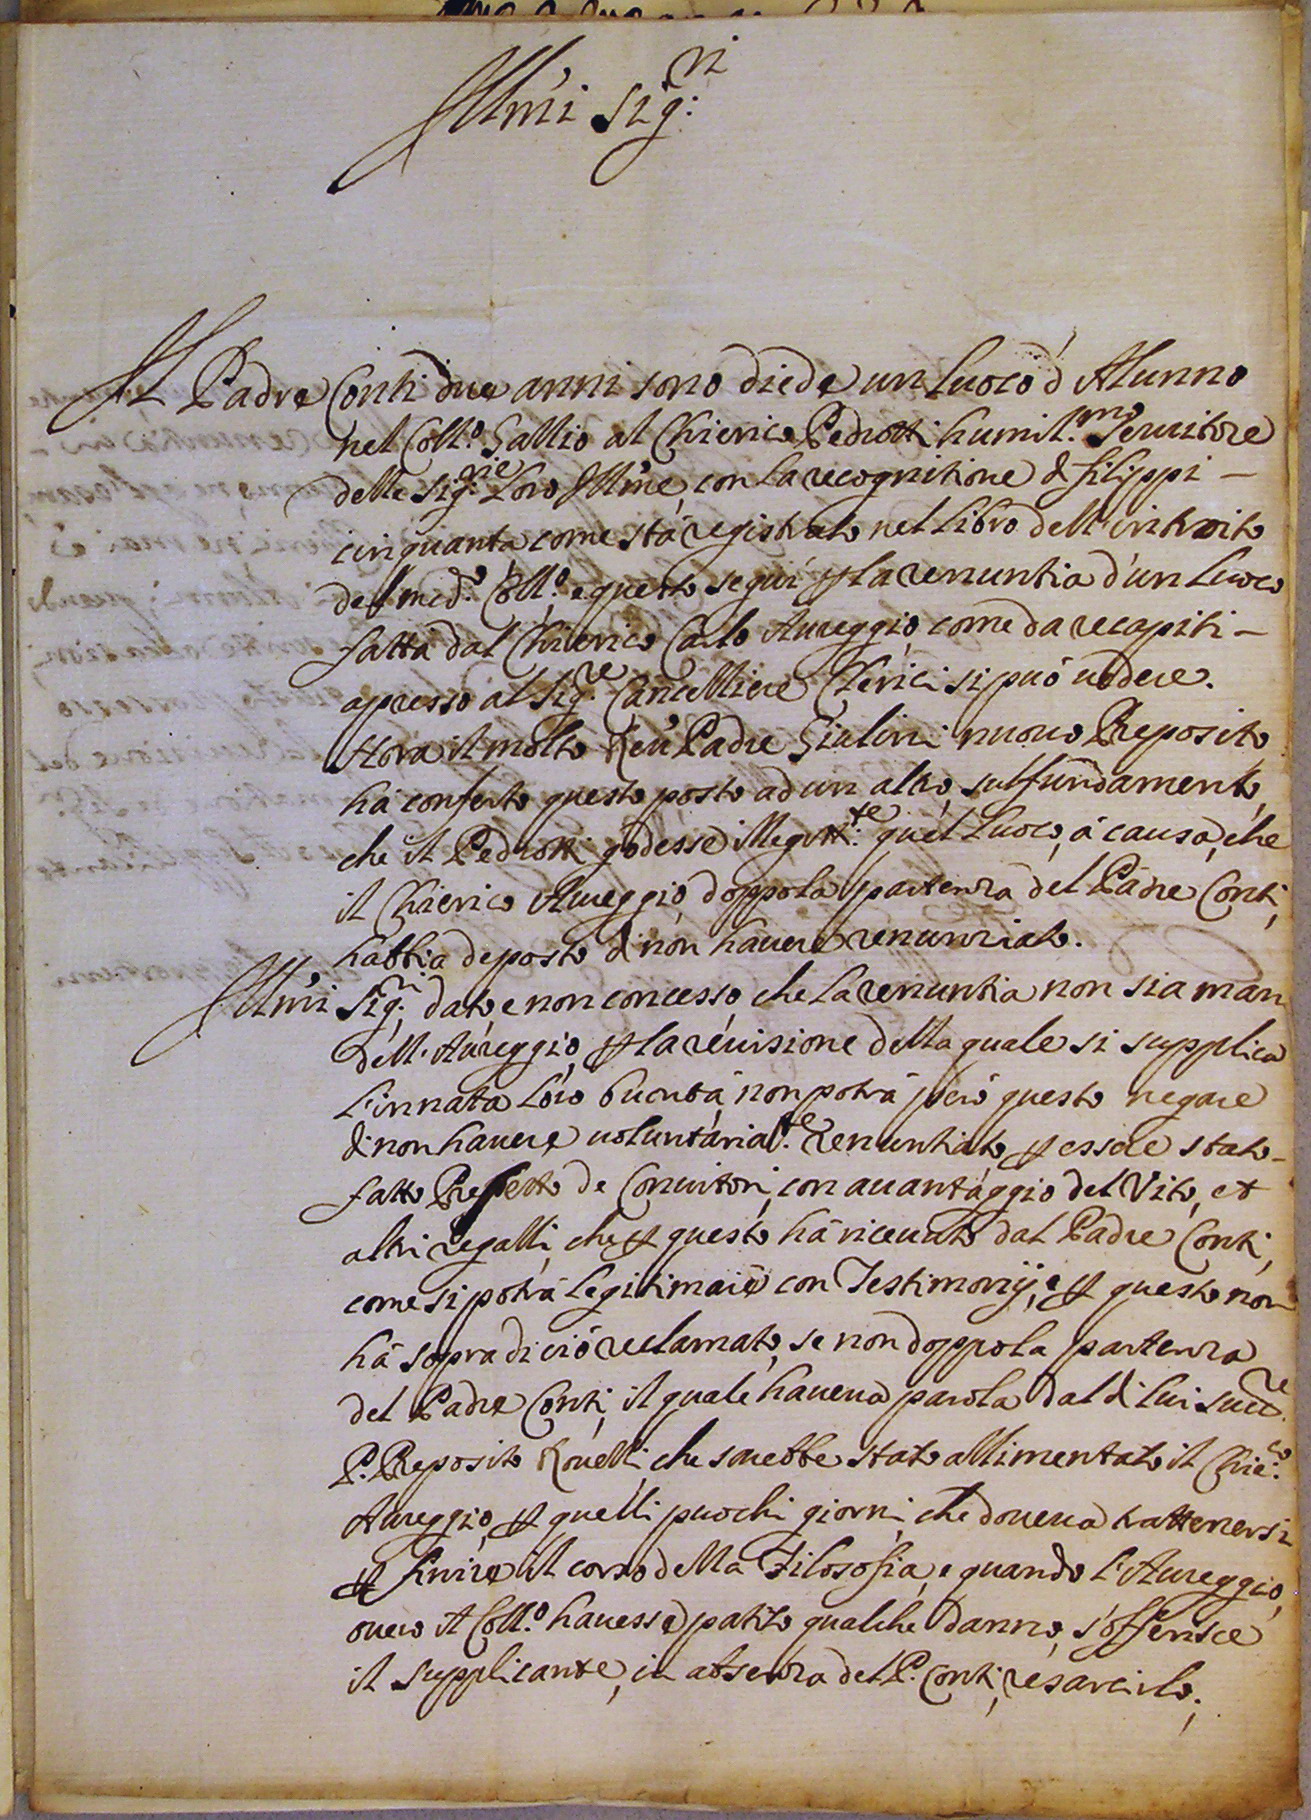 Ill'mi Sig:ri
Il Padre Conti due anni sono diede un luoco d'Alunno
nel Coll.o Gallio al Chierico Pedrotti humil.mo Servitore
delle Sig.rie Loro Ill'me, con la recognitione di filippi -
cinquanta, come stà registrato nel Libro dell'introito
del med.o Coll.o, e questo seguì p la renuntia d'un luoco
fatta dal Chierico Carlo Aureggio, come da recapiti -
apresso al Sig.re Cancelliere Clerici si può vedere.
Hora il molto Reu' Padre Giulini nuouo Preposito
hà conferto questo posto ad un altro, sul fundamento,
che il Pedrotti godesse illegitt:te quel luoco, à causa, che
il Chierico Aureggio doppo la partenza del Padre Conti,
habbia deposto di non hauere renunziato.
Ill'mi Sig.ri, dato, e non concesso, che la renuntia non sia man
dell'Aureggio, p la reuisione della quale si supplica
l'innata Loro buontà, non potrà però questo negare
di non hauere uoluntaria.te renuntiato, p essere stato -
fatto Prefetto de Conuitori, con auantaggio del Vito, et
altri regalli, che p questo hà riceuuto dal Padre Conti,
come si potrà legitimare con Testimonij, e p questo non
hà sopra di ciò reclamato, se non doppo la partenza
del Padre Conti, il quale haueua parola dal di lui succ.re
P. Preposito Rouelli, che sarebbe stato allimentato il Chie:co
Aureggio, p quelli puochi giorni, che doueua trattenersi
p finire il corso della Filosofia, e quando l'Aureggio,
ouero il Coll.o hauesse patito qualche danno, s'offerisce
il supplicante, in absenza del P. Conti, resarcirlo,